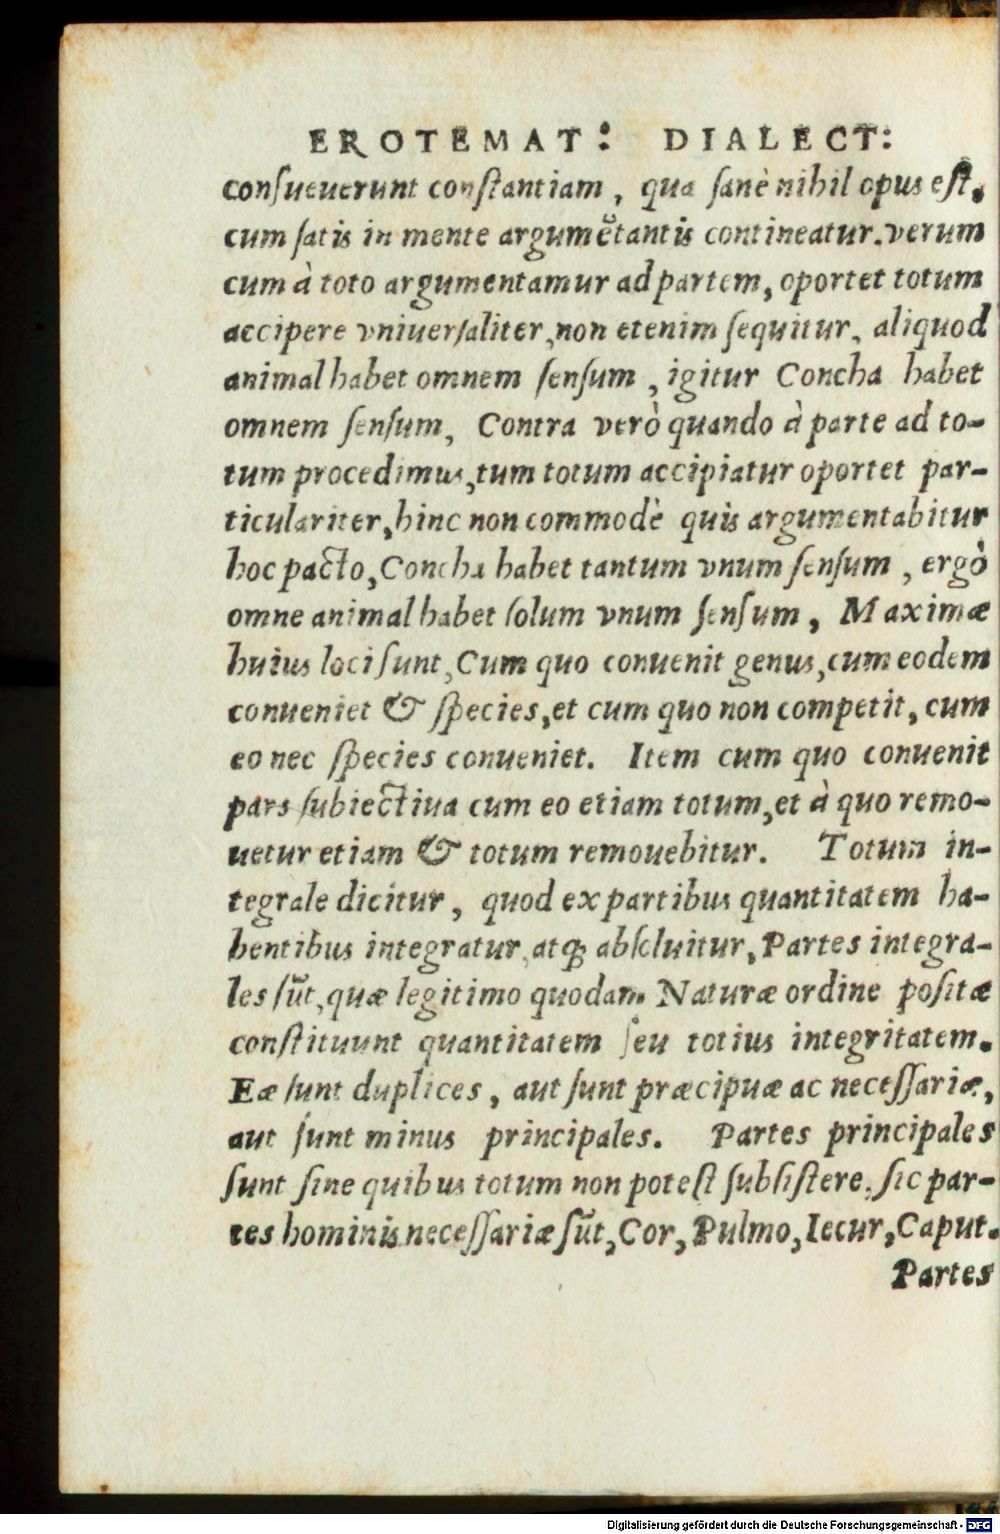 EROTEMAT: DIALECT:
conſueuerunt conſtantiam, qua ſanè nihil opus eſt,
cum ſatis in mente argumētantis contineatur. verum
cum à toto argumentamur ad partem, oportet totum
accipere vniuerſaliter, non etenim ſequitur, aliquod
animal habet omnem ſenſum, igitur Concha habet
omnem ſenſum, Contra verò quando à parte ad to-
tum procedimus, tum totum accipiatur oportet par-
ticulariter, hinc non commodè quis argumentabitur
hoc pacto, Concha habet tantum vnum ſenſum, ergò
omne animal habet ſolum vnum ſenſum, Maximæ
huius loci ſunt, Cum quo conuenit genus, cum eodem
conueniet & ſpecies, et cum quo non competit, cum
eo nec ſpecies conueniet. Item cum quo conuenit
pars ſubiectiua cum eo etiam totum, et à quo remo-
uetur etiam & totum remouebitur. Totum in-
tegrale dicitur, quod ex partibus quantitatem ha-
bentibus integratur, atq́ꝫ abſoluitur, Partes integra-
les ſūt, quæ legitimo quodam Naturæ ordine poſitæ
conſtituunt quantitatem ſeu totius integritatem.
Eæ ſunt duplices, aut ſunt præcipuæ ac neceſſariæ,
aut ſunt minus principales. Partes principales
ſunt ſine quibus totum non poteſt ſubſiſtere, ſic par-
tes hominis neceſſariæ ſūt, Cor, Pulmo, Iecur, Caput.
Partes
Digitalisierung gefördert durch die Deutsche Forschungsgemeinschaft - DFG